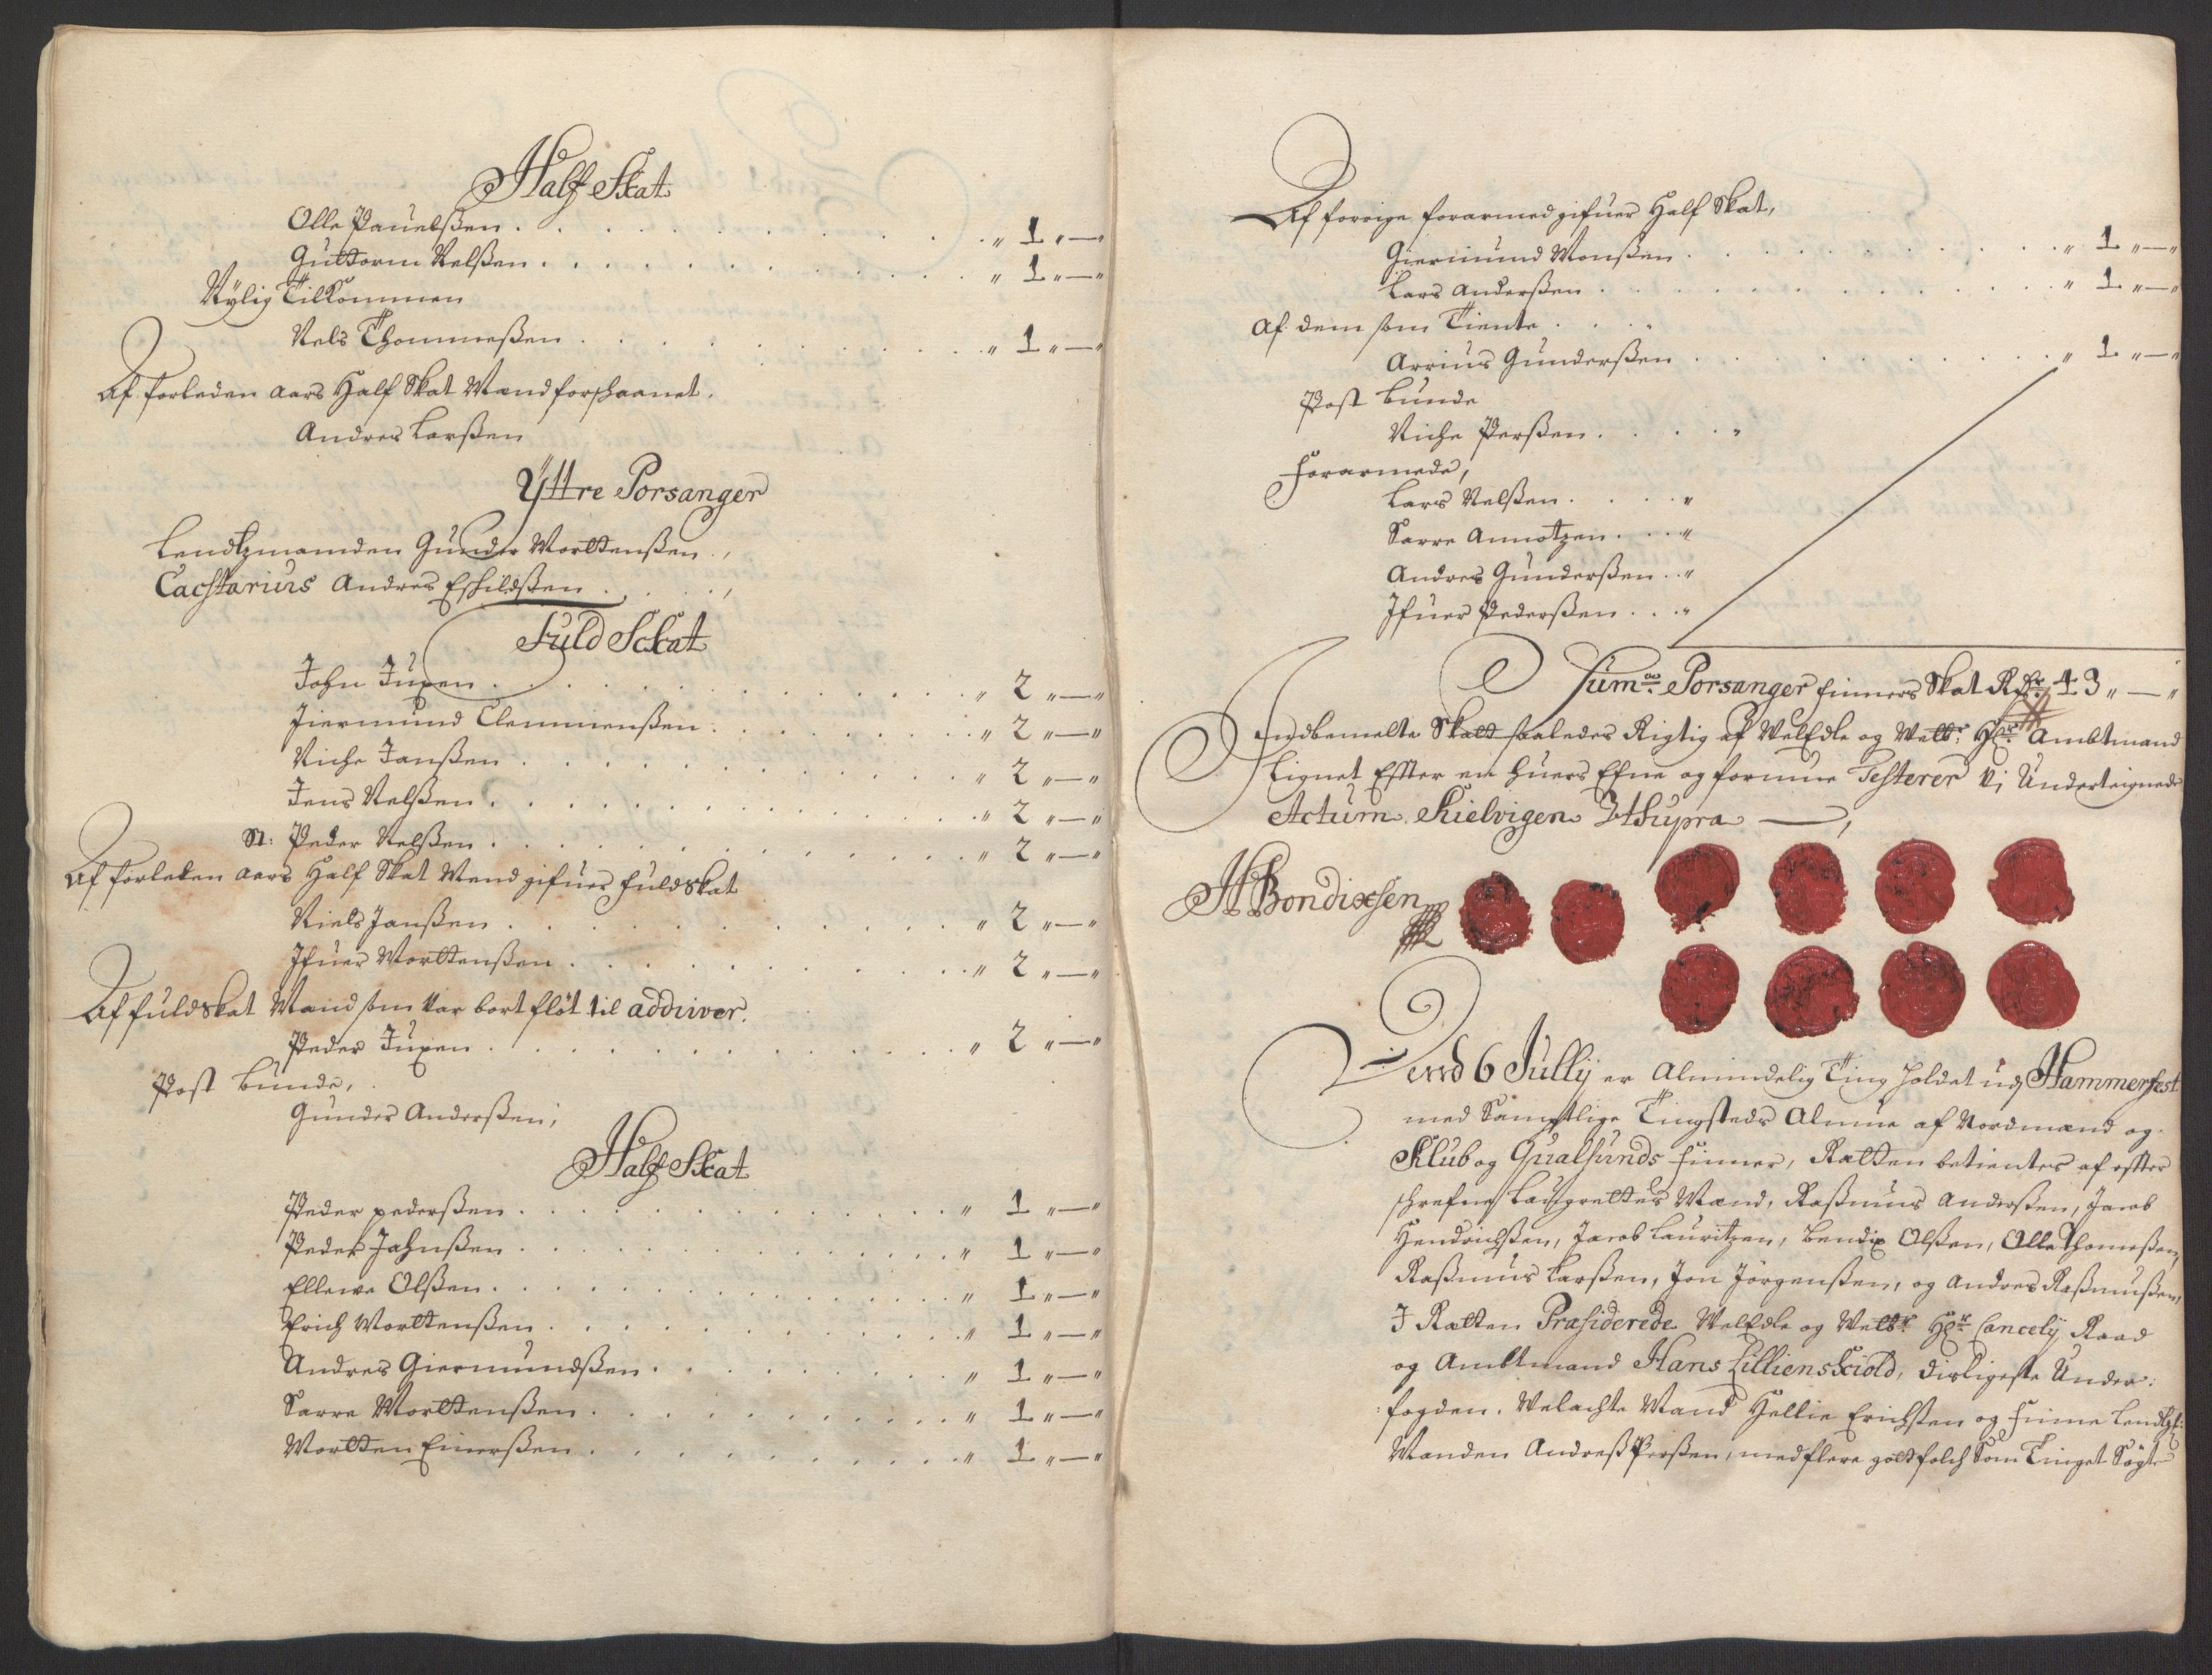 Half Skat
Olle Pauelsßen . . . „ 1 „ — „
Guttorm Nelsßen . . . „ 1 „ — „
Nÿlig Tilkommen
Nels Thommesßen . . . „ 1 „ — „
Af forleden aars Half Skat Mand forschaanet.
Andres Larsßen
Ÿttre Porsanger
Lendtzmanden Gunder Morttensßen ,
Cachtarius Andres Eskildsßen . . . ,
Fuld Sckat
John Juxen . . . „ 2 „ — „
Jiermund Clemmensßen . . . „ 2 „ — „
Niche Jansßen . . . „ 2 „ — „
Jens Nelsßen . . . „ 2 „ — „
Peder Nelsßen . . . „ 2 „ — „
Af forleden aars Half Skat Mend gifuer fuldskat
Niels Jansßen . . . „ 2 „ — „
Ifuer Morttensßen . . . „ 2 „ — „
Af fuldskat Mand som var bort fløt til
Peder Juxen . . . „ 2 „ — „
Post bunde,
Gunder Andersßen;
Half Skat
Peder pedersßen . . . „ 1 „ — „
Peder Jahnsßen . . . „ 1 „ — „
Ellewe Olsßen . . . „ 1 „ — „
Erich Morttensßen . . . „ 1 „ — „
Andres Giermundsßen . . . „ 1 „ — „
Sarre Morttensßen . . . „ 1 „ — „
Mortten Einersßen . . . „ 1 „ — „
Af forrige forarmed gifuer Half Skat,
Giermund Monsßen . . . „ 1 „ — „
Lars Andersßen . . . „ 1 „ — „
Af dem som Tiente . . .
Arrius Gundersßen . . . „ 1 „ — „
Post bunde
Niche Persßen . . . „
Forarmede,
Lars Nelsßen . . . „
Sarre Amnotzen . . . „
Andres Gundersßen . . „
Ifuer Pedersßen . . . „
Sum̅a Porsanger finners Skat Rdr 43 „ — „
Indbemelte Skatt saaledes Rigtig af WelEdle og Welbr: Hr: Ambtmand
Lignet Effter en huers Efne og formue Testerer Vi Underteignede
Actum Kielvigen Ut Supra — ,
H Bendixsen
Dend 6 Jullÿ er Almindelig Ting holdet ud Hammerfest
med Samptlige Tingsteds Almue af Nordmænd og
Klub og Qualsunds finner, Retten betientes af effter
schrefne Laugrettes Mænd, Rasmus Andersßen, Jacob
Hendrichsßen, Jacob Lauritzen, Bendix Olsßen, Olle Thomesßen,
Rasmus Larsßen, Jon Jörgensßen, og Andres Rasmusßen,
I Retten Præsiderede WelEdle og Welbr: Hr: Cancelÿ Raad
og Ambtmand Hans Lillienskiold, disligeste Under:
:fogden. Welachte Mand Hellie Erichsßen og finne Lendtz:
Manden Andreß Persßen, med flere gott folch Som Tinget Søgte